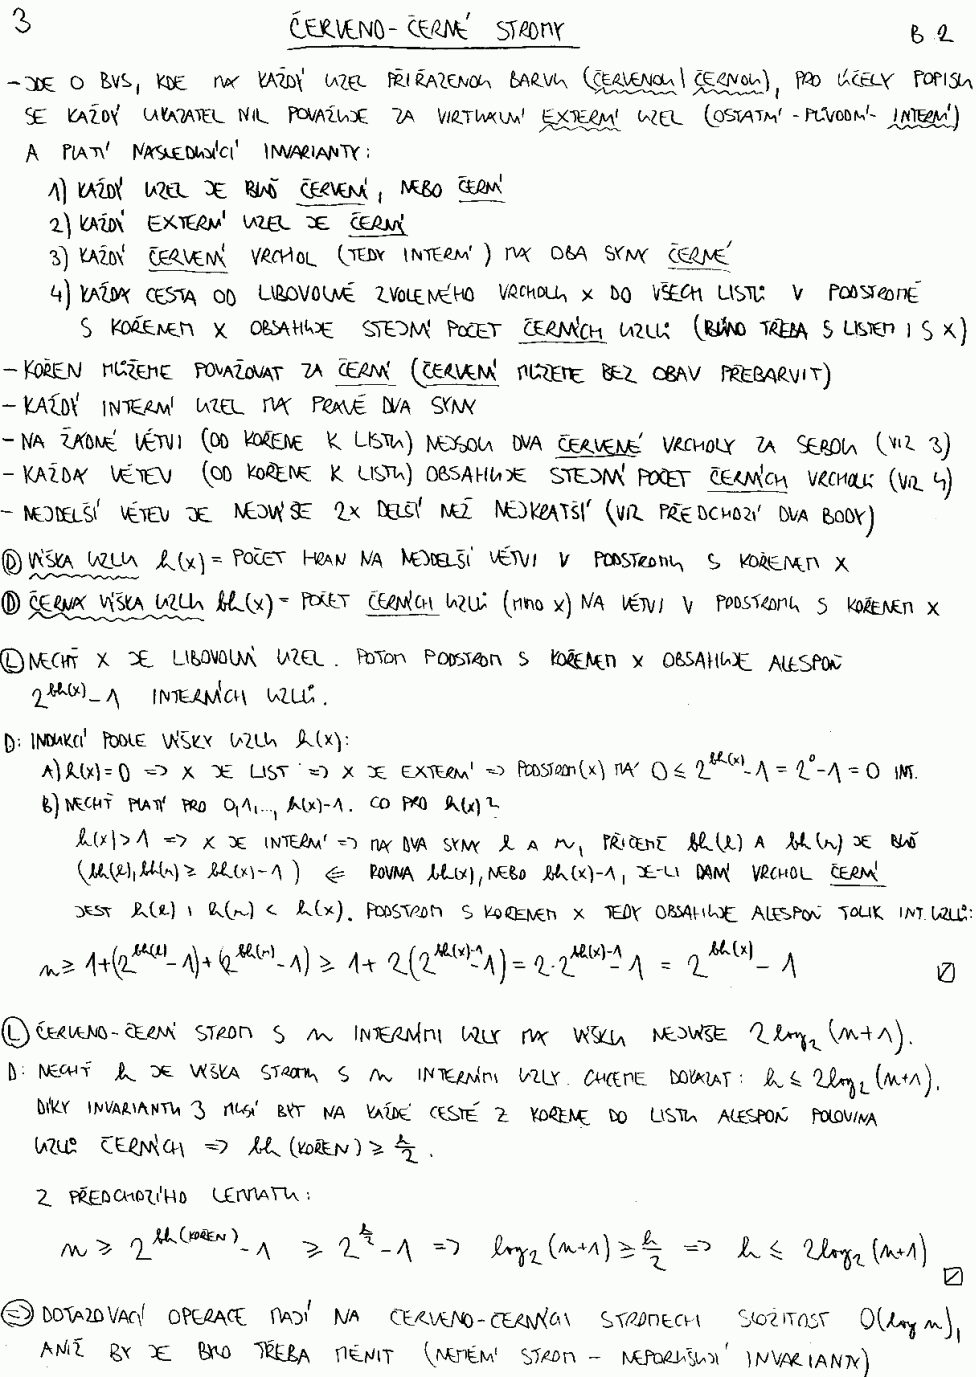 3 ČERVENO-ČERNÉ STROMY B 2
- JDE O BVS, KDE MÁ KAŽDÝ UZEL PŘIŘAZENOU BARVU (ČERVENOU | ČERNOU), PRO ÚČELY POPISU
SE KAŽDÝ UKAZATEL NIL POVAŽUJE ZA VIRTUÁLNÍ EXTERNÍ UZEL (OSTATNÍ - PŮVODNÍ - INTERNÍ)
A PLATÍ NÁSLEDUJÍCÍ INVARIANTY:
1) KAŽDÝ UZEL JE BUĎ ČERVENÝ, NEBO ČERNÝ
2) KAŽDÝ EXTERNÍ UZEL JE ČERNÝ
3) KAŽDÝ ČERVENÝ VRCHOL (TEDY INTERNÍ) MÁ OBA SYNY ČERNÉ
4) KAŽDÁ CESTA OD LIBOVOLNĚ ZVOLENÉHO VRCHOLU X DO VŠECH LISTŮ V PODSTROMĚ
S KOŘENEM X OBSAHUJE STEJNÝ POČET ČERNÝCH UZLŮ (BÚNO TŘEBA S LISTEM I S X)
- KOŘEN MŮŽEME POVAŽOVAT ZA ČERNÝ (ČERVENÝ MŮŽEME BEZ OBAV PŘEBARVIT)
- KAŽDÝ INTERNÍ UZEL MÁ PRÁVĚ DVA SYNY
- NA ŽÁDNÉ VĚTVI (OD KOŘENE K LISTU) NEJSOU DVA ČERVENÉ VRCHOLY ZA SEBOU (VIZ 3)
- KAŽDÁ VĚTEV (OD KOŘENE K LISTU) OBSAHUJE STEJNÝ POČET ČERNÝCH VRCHOLŮ (VIZ 4)
- NEJDELŠÍ VĚTEV JE NEJVÝŠE 2X DELŠÍ NEŽ NEJKRATŠÍ (VIZ PŘEDCHOZÍ DVA BODY)
Ⓓ VÝŠKA UZLU h(x) = POČET HRAN NA NEJDELŠÍ VĚTVI V PODSTROMU S KOŘENEM X
Ⓓ ČERNÁ VÝŠKA UZLU bh(x) = POČET ČERNÝCH UZLŮ (MIMO X) NA VĚTVI V PODSTROMU S KOŘENEM X
Ⓛ NECHŤ X JE LIBOVOLNÝ UZEL. POTOM PODSTROM S KOŘENEM X OBSAHUJE ALESPOŇ
2^{bh(x)} - 1 INTERNÍCH UZLŮ.
D: INDUKCÍ PODLE VÝŠKY UZLU h(x):
A) h(x) = 0 => X JE LIST => X JE EXTERNÍ => PODSTROM(X) MÁ 0 ≤ 2^{bh(x)} - 1 = 2^0 - 1 = 0 INT.
B) NECHŤ PLATÍ PRO 0,1,..., h(x)-1. CO PRO h(x)?
h(x) > 1 => X JE INTERNÍ => MÁ DVA SYNY l A r, PŘIČEMŽ bh(l) A bh(r) JE BUĎ
(bh(l), bh(r) ≥ bh(x)-1) <= ROVNA bh(x), NEBO bh(x)-1, JE-LI DANÝ VRCHOL ČERNÝ
JEST h(l) i h(r) < h(x). PODSTROM S KOŘENEM X TEDY OBSAHUJE ALESPOŇ TOLIK INT. UZLŮ:
n ≥ 1+(2^{bh(l)} - 1)+(2^{bh(r)} - 1) ≥ 1 + 2(2^{bh(x)-1} - 1) = 2·2^{bh(x)-1} - 1 = 2^{bh(x)} - 1
Ⓛ ČERVENO-ČERNÝ STROM S n INTERNÍMI UZLY MÁ VÝŠKU NEJVÝŠE 2log₂(n+1).
D: NECHŤ h JE VÝŠKA STROMU S n INTERNÍMI UZLY. CHCEME DOKÁZAT: h ≤ 2log₂(n+1).
DÍKY INVARIANTU 3 MUSÍ BÝT NA KAŽDÉ CESTĚ Z KOŘENE DO LISTU ALESPOŇ POLOVINA
UZLŮ ČERNÝCH => bh(KOŘEN) ≥ h/2.
Z PŘEDCHOZÍHO LEMMATU:
n ≥ 2^{bh(KOŘEN)} - 1 ≥ 2^{h/2} - 1 => log₂(n+1) ≥ h/2 => h ≤ 2log₂(n+1)
⇒ DOTAZOVACÍ OPERACE MAJÍ NA ČERVENO-ČERNÝCH STROMECH SLOŽITOST O(log n),
ANIŽ BY JE BYLO TŘEBA MĚNIT (NEMĚNÍ STROM - NEPORUŠUJÍ INVARIANTY)